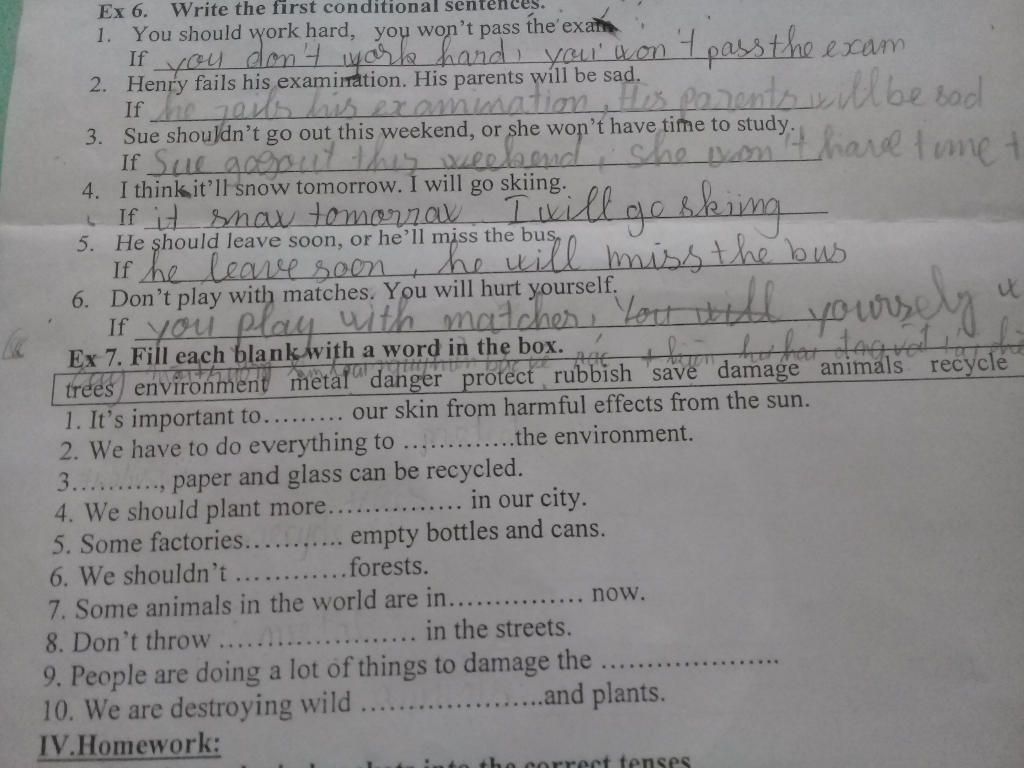 Ex 6. Write the first conditional sentences.
1. You should work hard, you won't pass the exam
If you don't work hard, you won't pass the exam
2. Henry fails his examination. His parents will be sad.
If he fails his examination, His parents will be sad
3. Sue shouldn't go out this weekend, or she won't have time to study.
If Sue goes out this weekend, she won't have time t
4. I think it'll snow tomorrow. I will go skiing.
If it snow tomorrow I will go skiing
5. He should leave soon, or he'll miss the bus
If he leave soon, he will miss the bus
6. Don't play with matches. You will hurt yourself.
If you play with matches, You will
Ex 7. Fill each blank with a word in the box.
trees environment metal danger protect rubbish save damage animals recycle
1. It's important to......... our skin from harmful effects from the sun.
2. We have to do everything to .............the environment.
3.........., paper and glass can be recycled.
4. We should plant more............... in our city.
5. Some factories........... empty bottles and cans.
6. We shouldn't ............forests.
7. Some animals in the world are in............... now.
8. Don't throw ...................... in the streets.
9. People are doing a lot of things to damage the ....................
10. We are destroying wild ....................and plants.
IV.Homework:
into the correct tenses